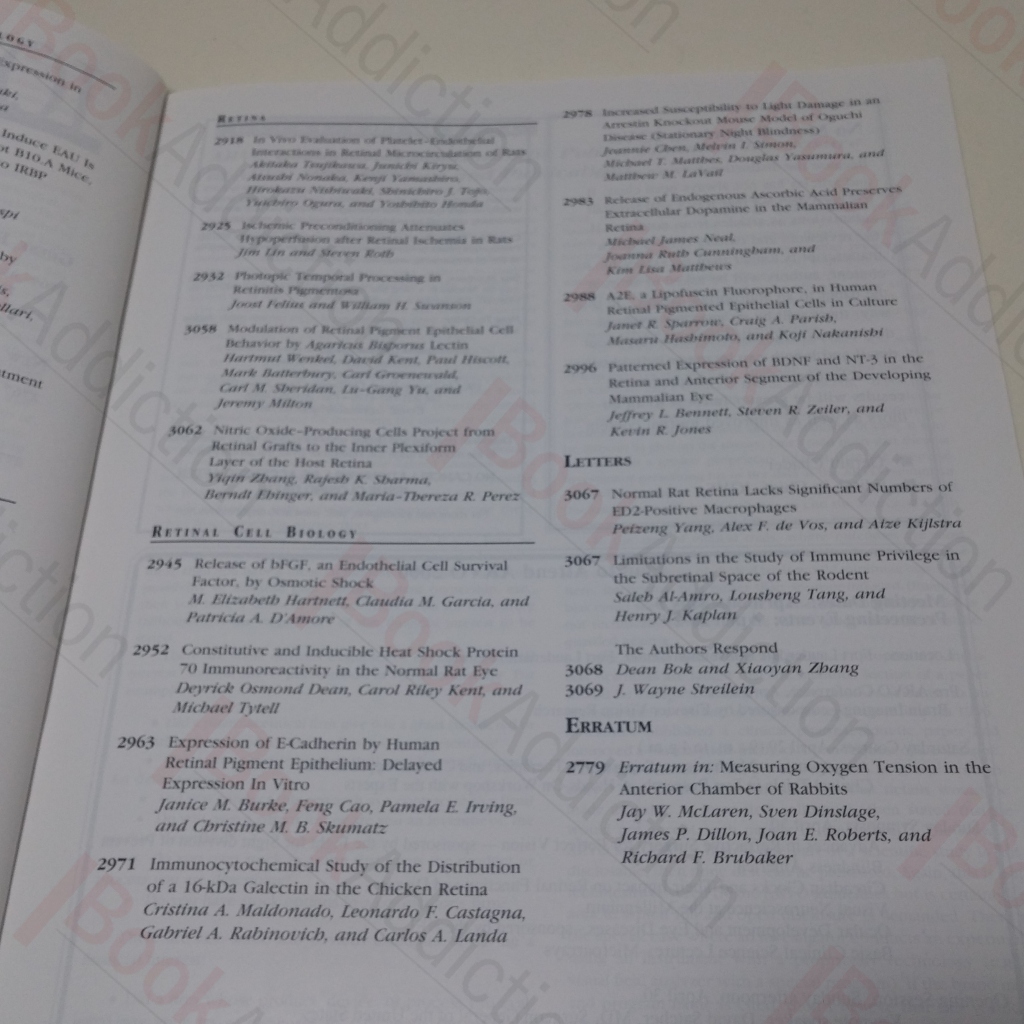 LOGY
xpression in
uki,
a
Induce EAU Is
ot B10.A Mice,
o IRBP
spi
by
s,
llari,
tment
RETINA
2918 In Vivo Evaluation of Platelet–Endothelial
Interactions in Retinal Microcirculation of Rats
Akitaka Tsujikawa, Junichi Kiryu,
Atsushi Nonaka, Kenji Yamashiro,
Hirokazu Nishiwaki, Shinichiro J. Tojo,
Yuichiro Ogura, and Yoshihito Honda
2925 Ischemic Preconditioning Attenuates
Hypoperfusion after Retinal Ischemia in Rats
Jim Lin and Steven Roth
2932 Photopic Temporal Processing in
Retinitis Pigmentosa
Joost Felius and William H. Swanson
3058 Modulation of Retinal Pigment Epithelial Cell
Behavior by Agaricus Bisporus Lectin
Hartmut Wenkel, David Kent, Paul Hiscott,
Mark Batterbury, Carl Groenewald,
Carl M. Sheridan, Lu-Gang Yu, and
Jeremy Milton
3062 Nitric Oxide–Producing Cells Project from
Retinal Grafts to the Inner Plexiform
Layer of the Host Retina
Yiqin Zhang, Rajesh K. Sharma,
Berndt Ehinger, and Maria-Thereza R. Perez
RETINAL CELL BIOLOGY
2945 Release of bFGF, an Endothelial Cell Survival
Factor, by Osmotic Shock
M. Elizabeth Hartnett, Claudia M. Garcia, and
Patricia A. D'Amore
2952 Constitutive and Inducible Heat Shock Protein
70 Immunoreactivity in the Normal Rat Eye
Deyrick Osmond Dean, Carol Riley Kent, and
Michael Tytell
2963 Expression of E-Cadherin by Human
Retinal Pigment Epithelium: Delayed
Expression In Vitro
Janice M. Burke, Feng Cao, Pamela E. Irving,
and Christine M. B. Skumatz
2971 Immunocytochemical Study of the Distribution
of a 16-kDa Galectin in the Chicken Retina
Cristina A. Maldonado, Leonardo F. Castagna,
Gabriel A. Rabinovich, and Carlos A. Landa
2978 Increased Susceptibility to Light Damage in an
Arrestin Knockout Mouse Model of Oguchi
Disease (Stationary Night Blindness)
Jeannie Chen, Melvin I. Simon,
Michael T. Matthes, Douglas Yasumura, and
Matthew M. LaVail
2983 Release of Endogenous Ascorbic Acid Preserves
Extracellular Dopamine in the Mammalian
Retina
Michael James Neal,
Joanna Ruth Cunningham, and
Kim Lisa Matthews
2988 A2E, a Lipofuscin Fluorophore, in Human
Retinal Pigmented Epithelial Cells in Culture
Janet R. Sparrow, Craig A. Parish,
Masaru Hashimoto, and Koji Nakanishi
2996 Patterned Expression of BDNF and NT-3 in the
Retina and Anterior Segment of the Developing
Mammalian Eye
Jeffrey L. Bennett, Steven R. Zeiler, and
Kevin R. Jones
LETTERS
3067 Normal Rat Retina Lacks Significant Numbers of
ED2-Positive Macrophages
Peizeng Yang, Alex F. de Vos, and Aize Kijlstra
3067 Limitations in the Study of Immune Privilege in
the Subretinal Space of the Rodent
Saleh Al-Amro, Lousheng Tang, and
Henry J. Kaplan
The Authors Respond
3068 Dean Bok and Xiaoyan Zhang
3069 J. Wayne Streilein
ERRATUM
2779 Erratum in: Measuring Oxygen Tension in the
Anterior Chamber of Rabbits
Jay W. McLaren, Sven Dinslage,
James P. Dillon, Joan E. Roberts, and
Richard F. Brubaker
BookAddiction